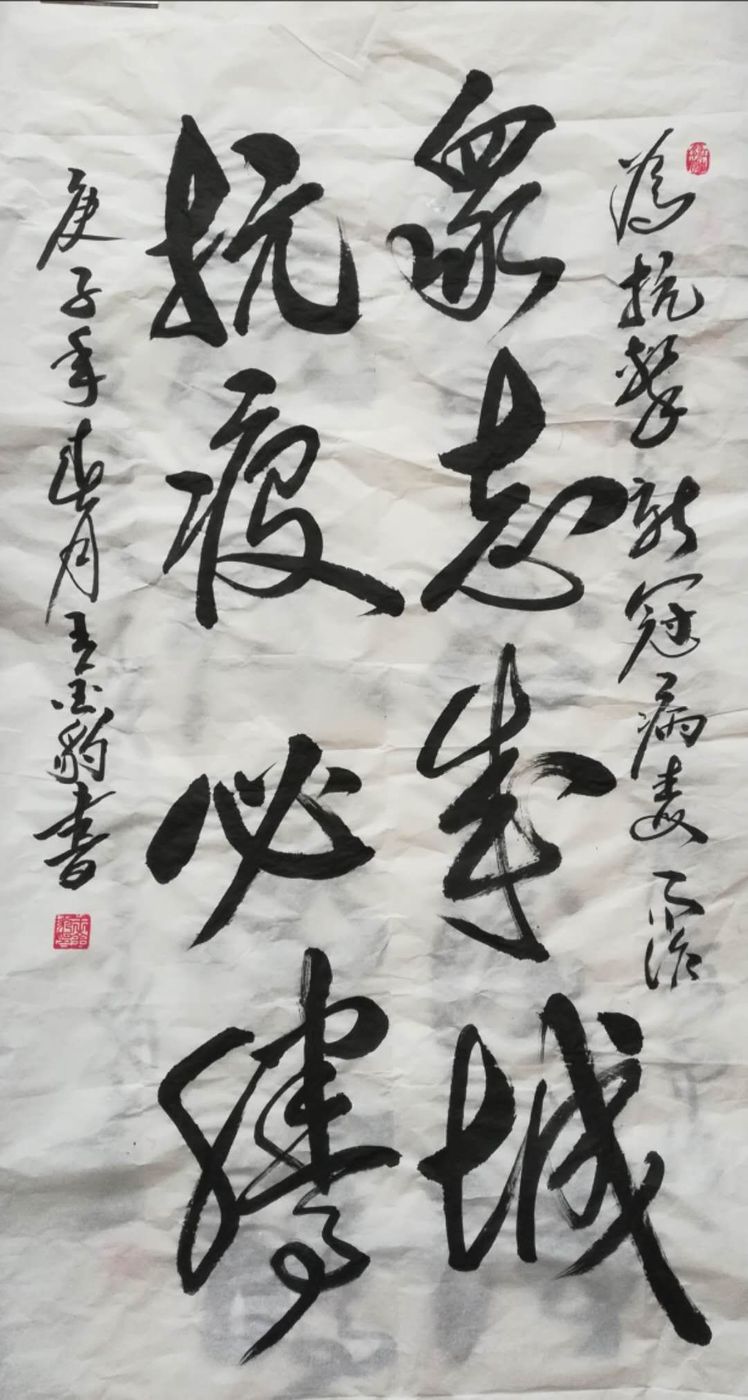 為抗擊新冠病毒而作
衆志成城
抗疫必勝
庚子年春月王豹書